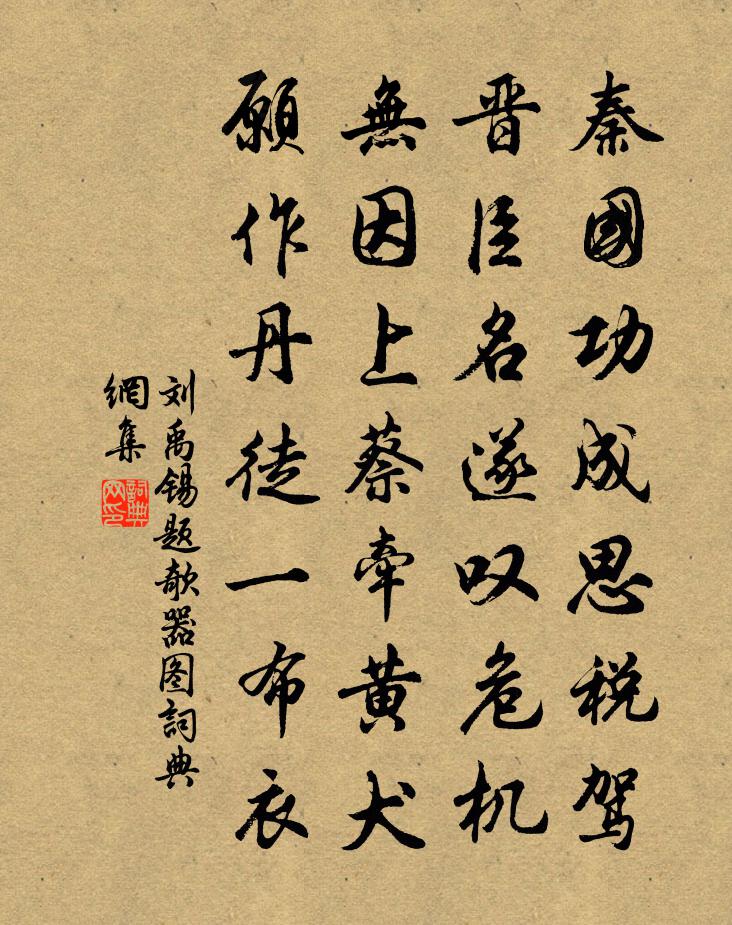 秦國功成思税驾
晋臣名遂叹危机
無因上蔡牵黄犬
願作丹徒一布衣
刘禹锡题欹器图詞典
網集
詞典
网印